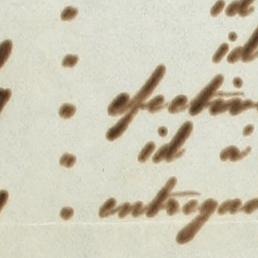 id
id
efectiv
id a
entrega